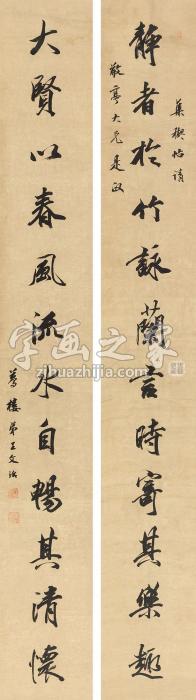 集禊帖请
敬亭大兄是政
静者於竹詠蘭言時寄其樂趣
大賢以春風流水自暢其清懷
夢樓弟王文治
字画之家
zihuazhijia.com